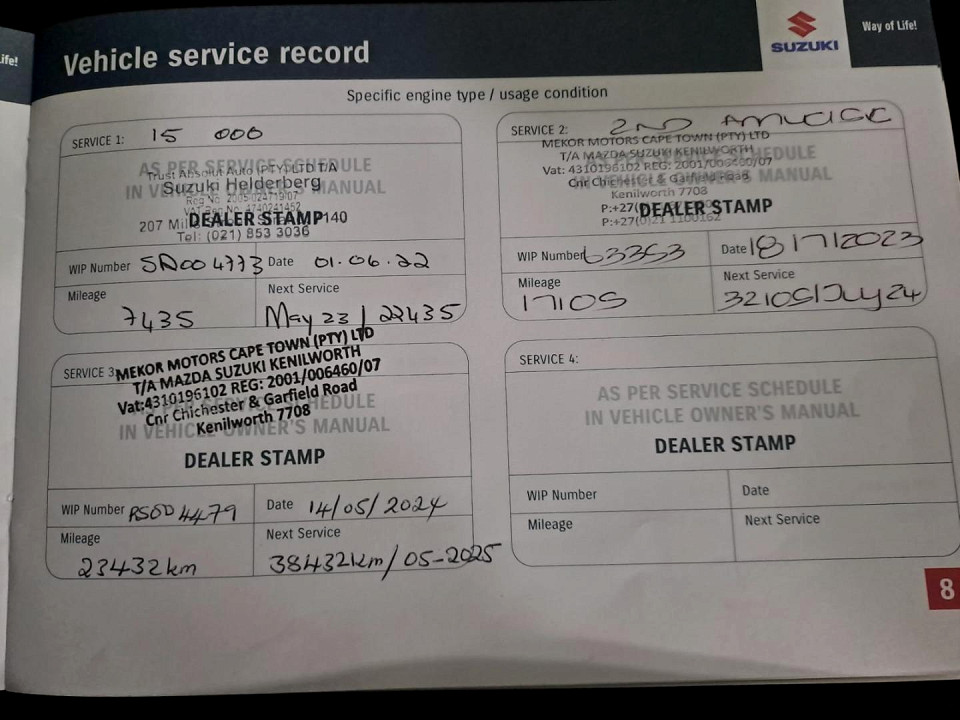 ife!
Vehicle service record
SUZUKI
Way of Life!
Specific engine type / usage condition
SERVICE 1: 15 000
AS PER SERVICE SCHEDULE
IN VEHICLE OWNER'S MANUAL
Trust Absolut Auto (PTY) LTD T/A
Suzuki Helderberg
DEALER STAMP
Tel: (021) 853 3036
WIP Number SA004773 Date 01.06.22
Mileage
7435
Next Service
May 23 / 22435
SERVICE 2: 2ND
MEKOR MOTORS CAPE TOWN (PTY) LTD
T/A MAZDA SUZUKI KENILWORTH
Vat: 4310196102 REG: 2001/006460/07
Cnr Chichester & Garfield Road
Kenilworth 7708
DEALER STAMP
WIP Number 63353 Date 18/7/2023
Mileage
17105
Next Service
32105/July 24
SERVICE 3:
MEKOR MOTORS CAPE TOWN (PTY) LTD
T/A MAZDA SUZUKI KENILWORTH
Vat:4310196102 REG: 2001/006460/07
Cnr Chichester & Garfield Road
Kenilworth 7708
IN VEHICLE OWNER'S MANUAL
DEALER STAMP
WIP Number Date 14/05/2024
Mileage
23432km
Next Service
38432km/05-2025
SERVICE 4:
AS PER SERVICE SCHEDULE
IN VEHICLE OWNER'S MANUAL
DEALER STAMP
WIP Number
Date
Mileage
Next Service
8